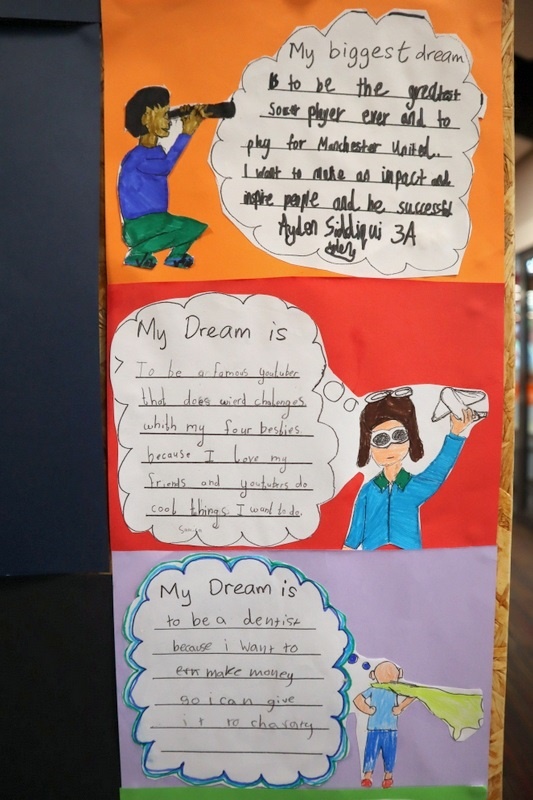 My biggest dream
is to be the greatest
soccer player ever and to
play for Manchester United.
I want to make an impact and
inspire people and be successful
Ayden Siddiqui 3A
My Dream is
To be a famous youtuber
that does wierd chalenges
whith my four besties.
because I love my
friends and youtubers do
cool things I want to do.
My Dream is
to be a dentist
because i want to
make money
so i can give
it to charaty